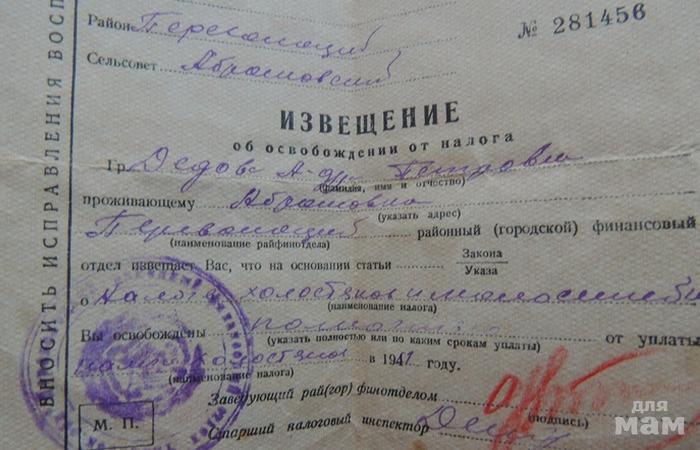 ВНОСИТЬ ИСПРАВЛЕНИЯ ВОСП
Район
№ 281456
Сельсовет Абрамовский
ИЗВЕЩЕНИЕ
об освобождении от налога
Гр. Петровна
(фамилия, имя и отчество)
проживающему Абрамовка
(указать адрес)
районный (городской) финансовый
(наименование райфинотдела)
отдел извещает Вас, что на основании статьи Закона
Указа
о налоге холостяков и
(наименование налога)
Вы освобождены от уплаты
(указать полностью или по каким срокам уплаты)
холостяков в 1941 году.
(наименование налога)
Заведующий рай(гор) финотделом
(подпись)
М. П.
Старший налоговый инспектор
для
мам